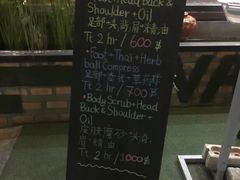 Head Back &
Shoulder + Oil
足部+头肩背+精油
Tt 2 hr / 600฿
• Foot + Thai + Herb
ball Compress
足部+泰式+草药球
Tt 2 hr / 700฿
• Body Scrub + Head
Back & Shoulder +
Oil
皮肤磨砂+头肩
背+精油
Tt 2 hr / 1000฿